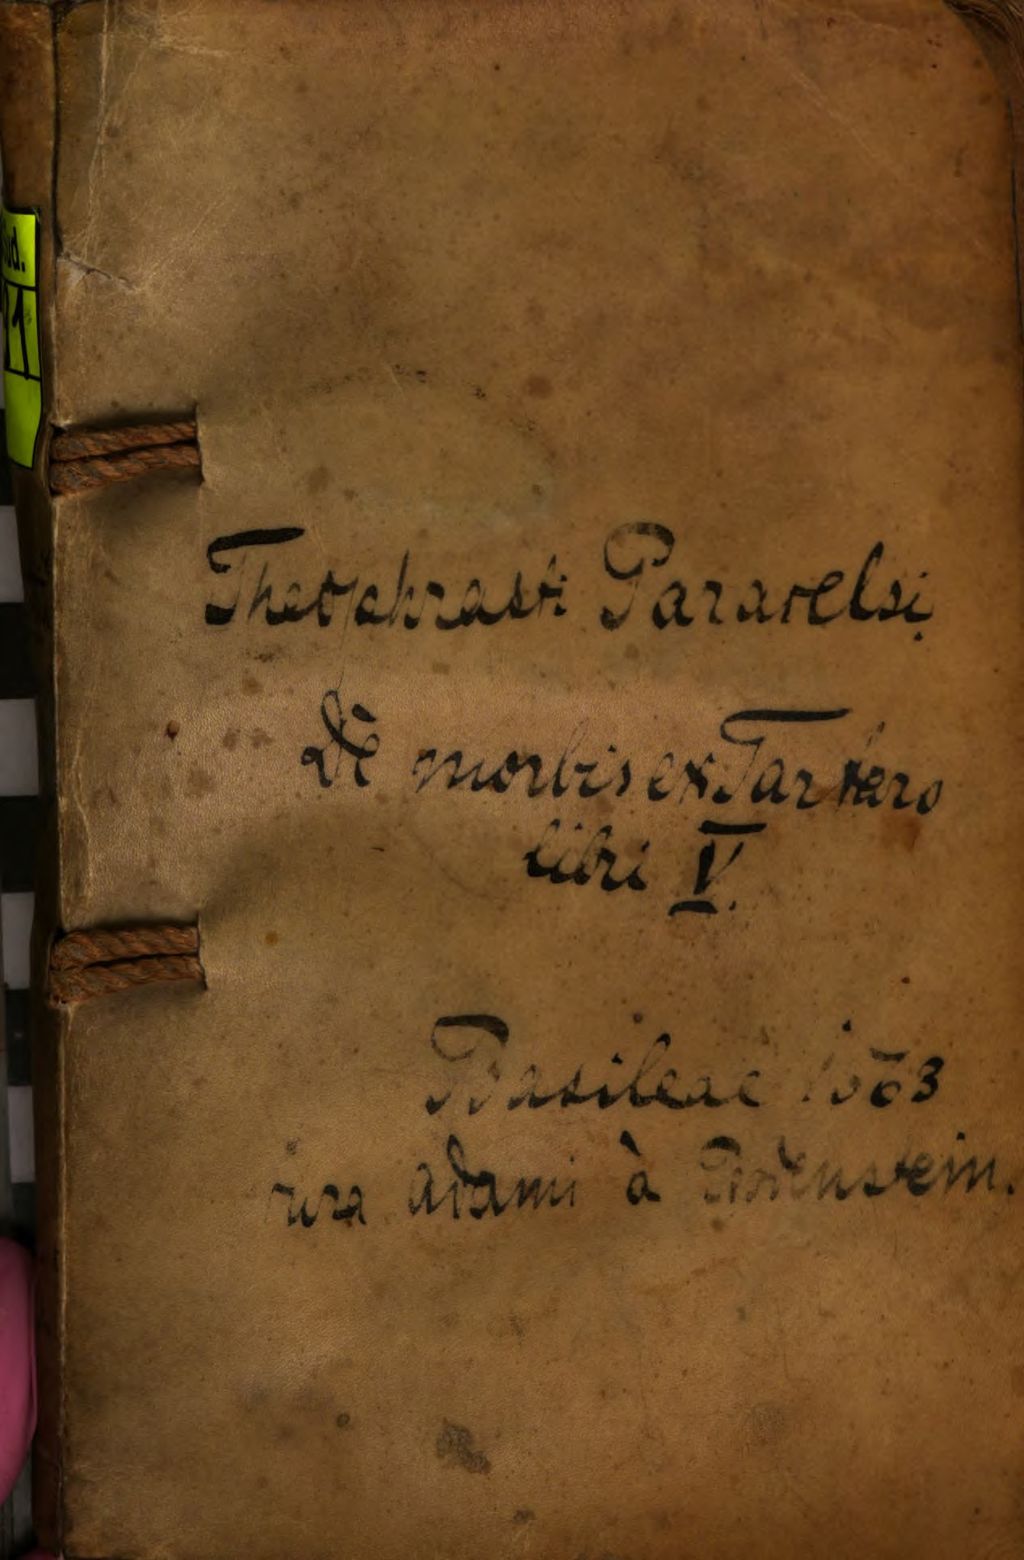 ud.
71
Theophrasti Paracelsi
De morbis ex Tartaro
libri V.
Basileae 1563
cura Adami à Bodenstein.